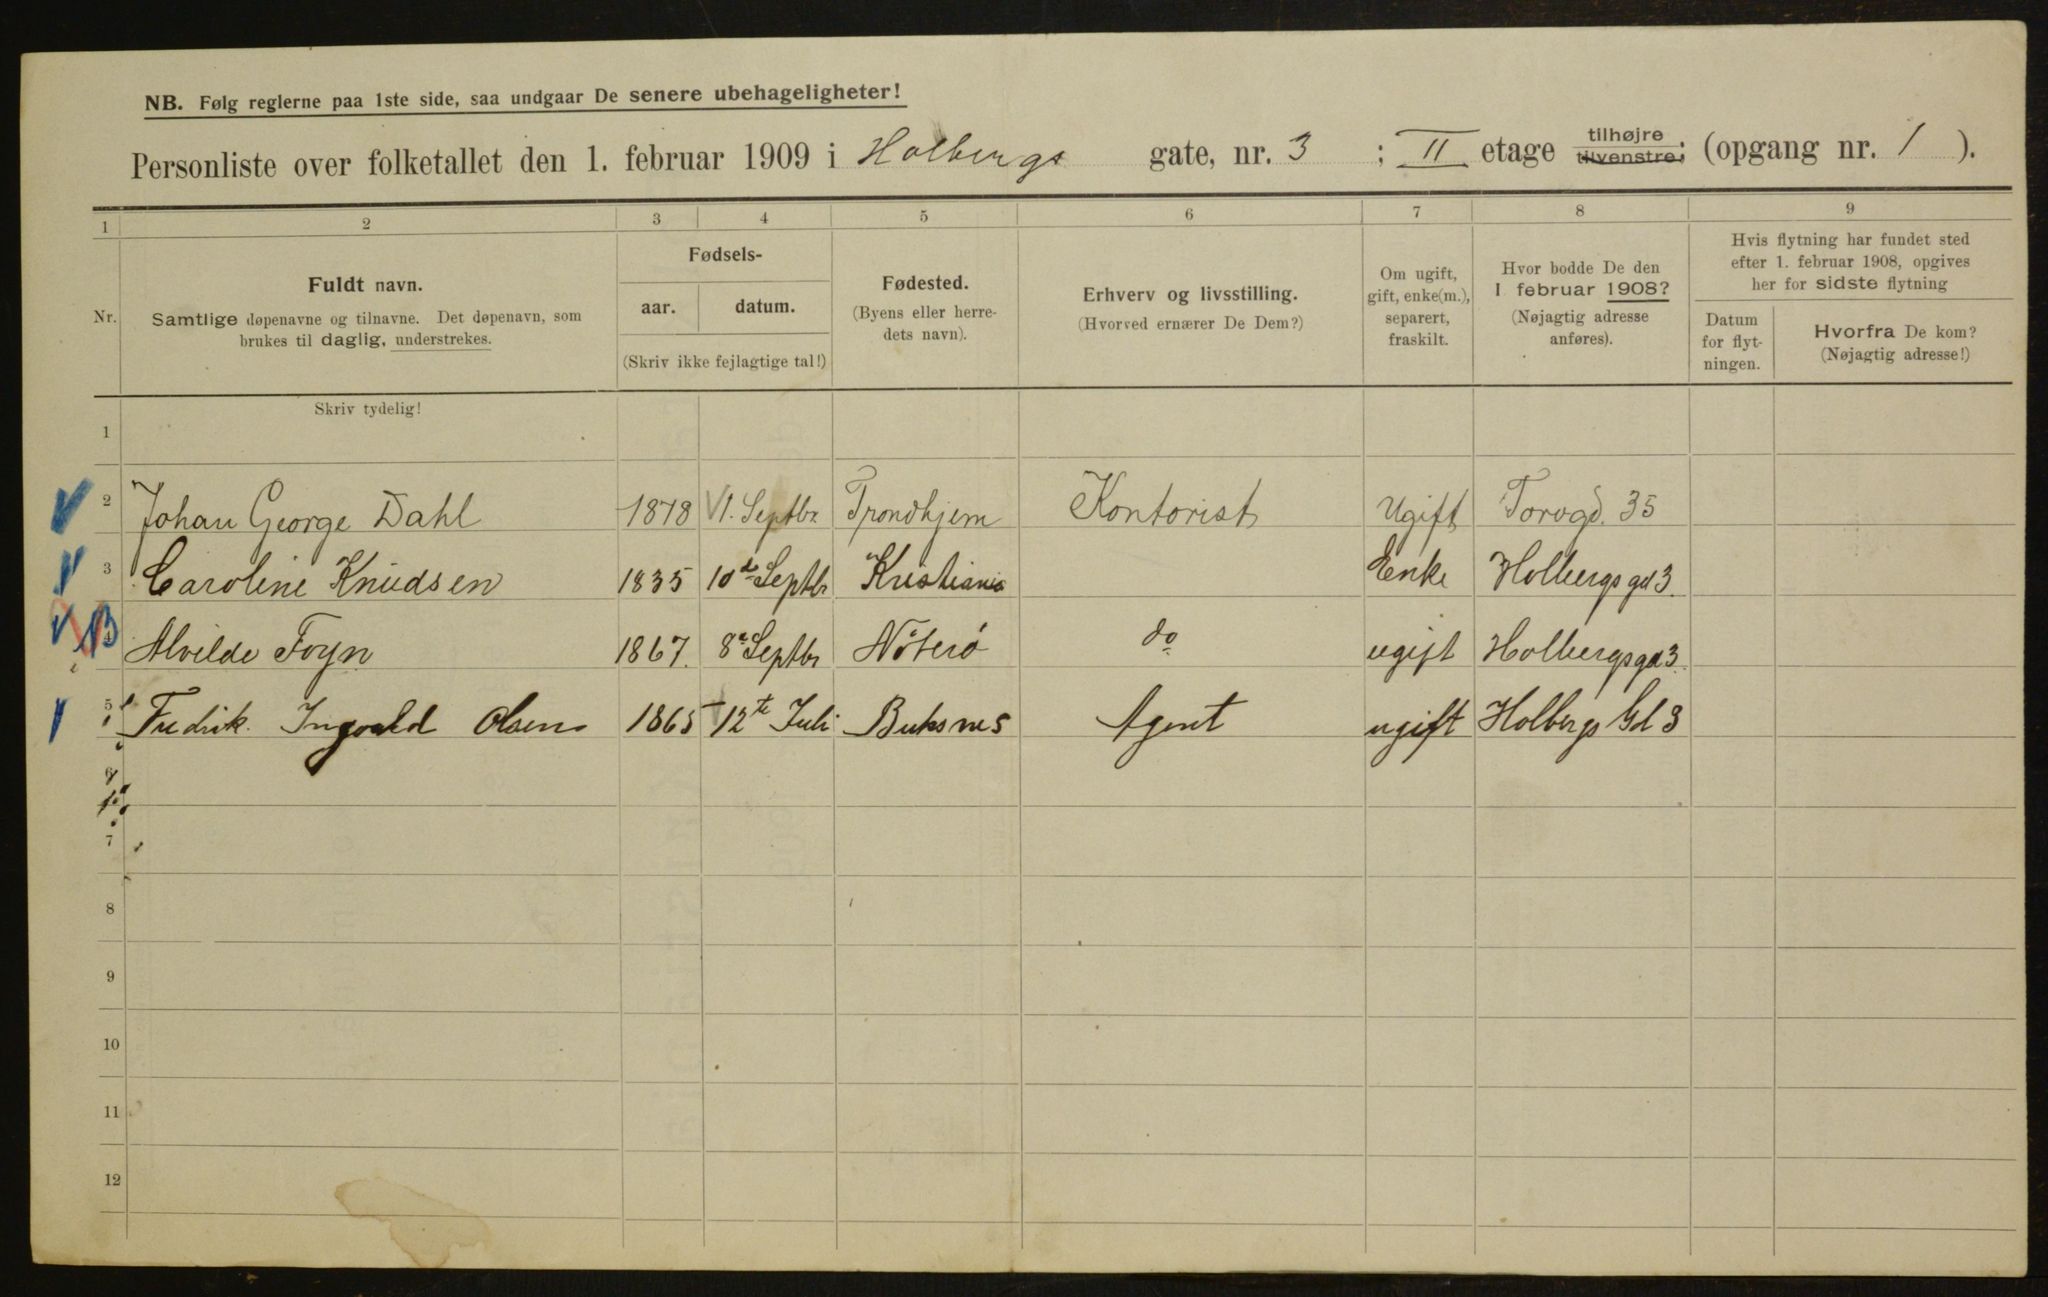 NB. Følg reglerne paa 1ste side, saa undgaar De senere ubehageligheter!
Personliste over folketallet den 1. februar 1909 i Holbergs gate, nr. 3 ; II etage tilhøjre tilvenstre; (opgang nr. 1 ).
1 2 3 4 5 6 7 8 9
Nr.
Fuldt navn.
Samtlige døpenavne og tilnavne. Det døpenavn, som
brukes til daglig, understrekes.
Fødsels-
aar. datum.
(Skriv ikke fejlagtige tal!)
Fødested.
(Byens eller herre-
dets navn).
Erhverv og livsstilling.
(Hvorved ernærer De Dem?)
Om ugift,
gift, enke(m.),
separert,
fraskilt.
Hvor bodde De den
1 februar 1908?
(Nøjagtig adresse
anføres).
Hvis flytning har fundet sted
efter 1. februar 1908, opgives
her for sidste flytning
Datum
for flyt-
ningen.
Hvorfra De kom?
(Nøjagtig adresse!)
Skriv tydelig!
1
2 Johan George Dahl 1878 1. Septbr Trondhjem Kontorist Ugift Torvgd. 35
3 Caroline Knudsen 1835 10de Septbr Kristiania Enke Holbergsgd 3.
4 Alvilde Foyn 1867. 8de Septbr Nöterö do ugift Holbergsgd 3.
5 Fredrik Ingvald Olsen 1865 12te Juli Buksnes Agent ugift Holbergs Gd 3
6
7
8
9
10
11
12